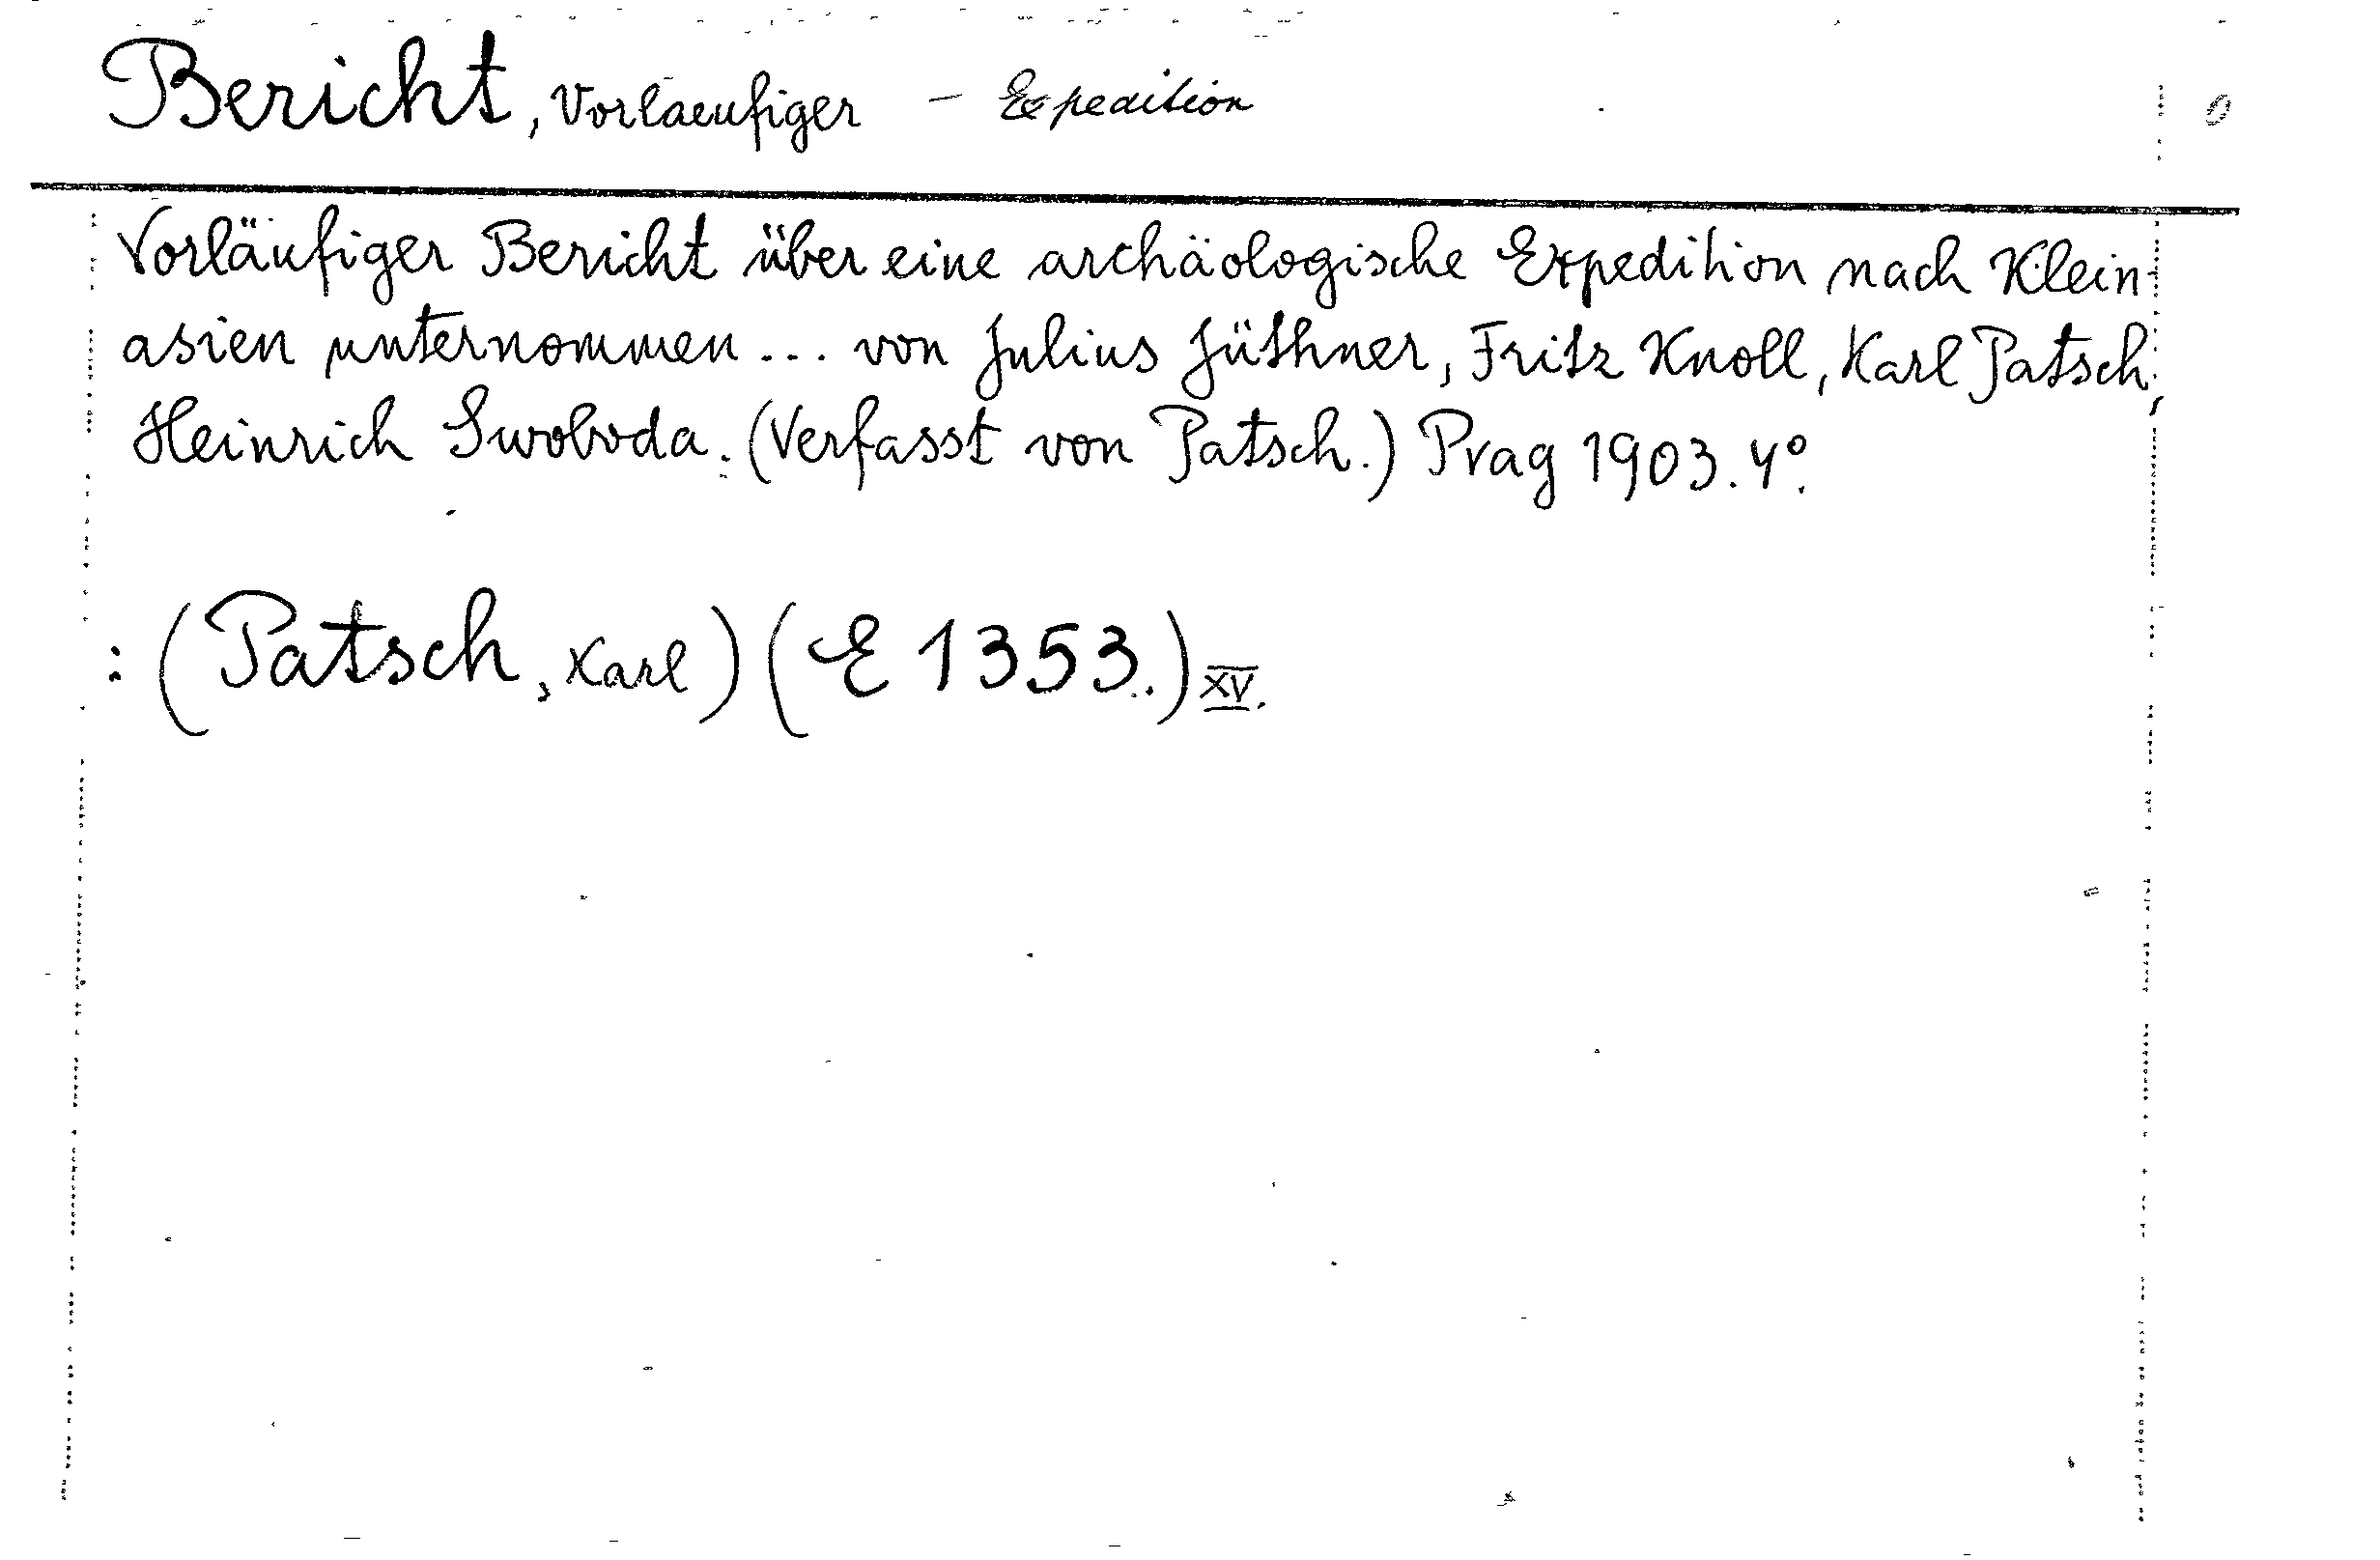 Bericht, Vorlaeufiger – Expedition 0
Vorläufiger Bericht über eine archäologische Expedition nach Klein-
asien unternommen ... von Julius Jüthner, Fritz Knoll, Karl Patsch,
Heinrich Swoboda. (Verfasst von Patsch.) Prag 1903. 4°.
: (Patsch, Karl) (E 1353.) XV.